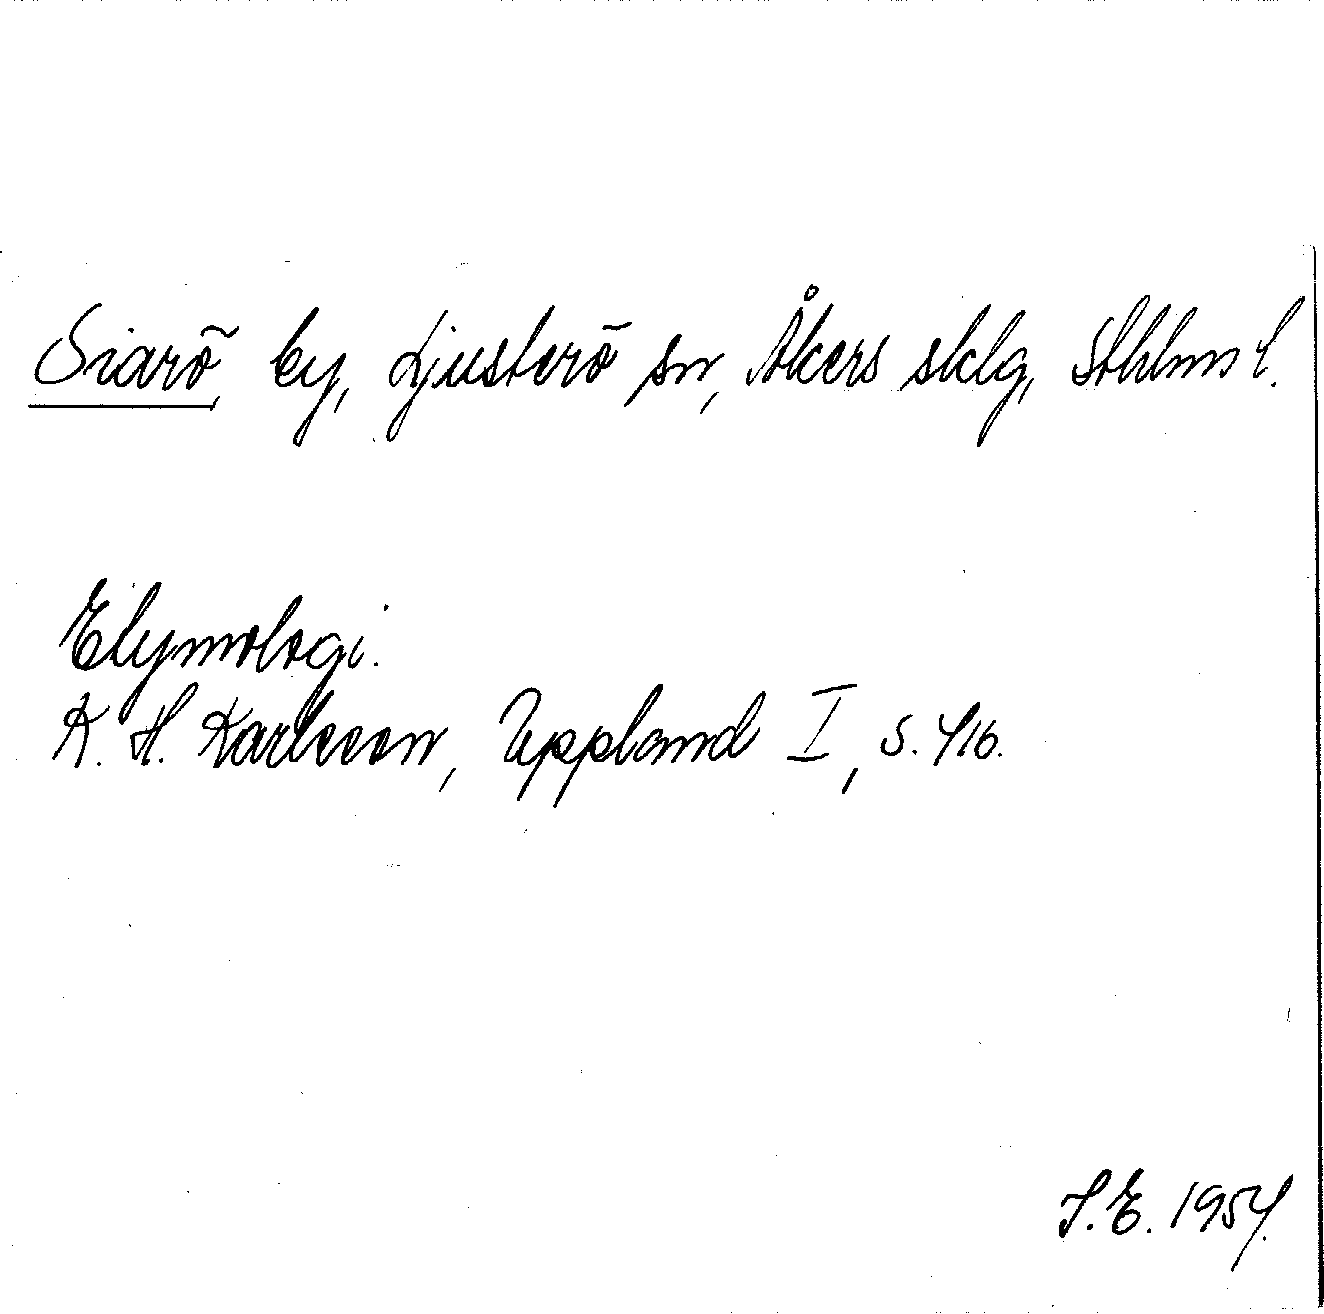 Siarö, by, Ljusterö sn, Åkers sklg, Sthlms l.
Etymologi.
K. H. Karlsson, Uppland I, s. 416.
S.E. 1954.